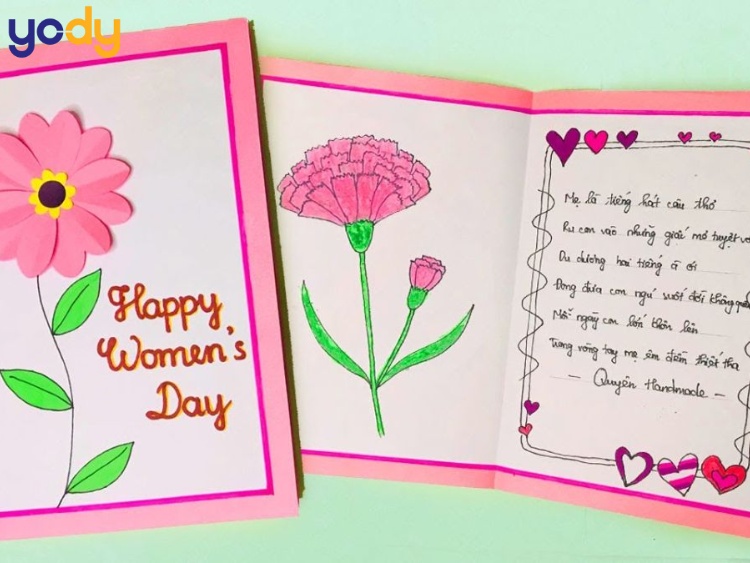 yody
Happy
Women's
Day
Mẹ là tiếng hát câu thơ
Ru con vào những giấc mơ tuyệt
Du dương hai tiếng ã ơi
Đong đưa con ngủ suốt đời không
Mỗi ngày con lớn khôn lên
Trong vòng tay mẹ êm đềm thiết tha
- Quyên Handmade -